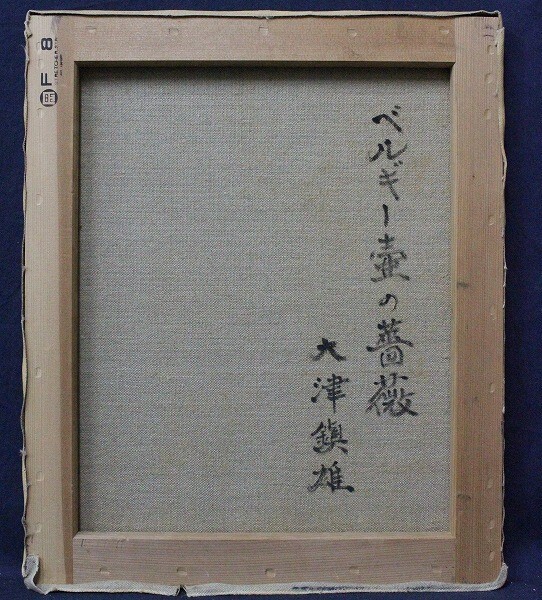 ベルギー壷の薔薇
大津鎮雄
F 8